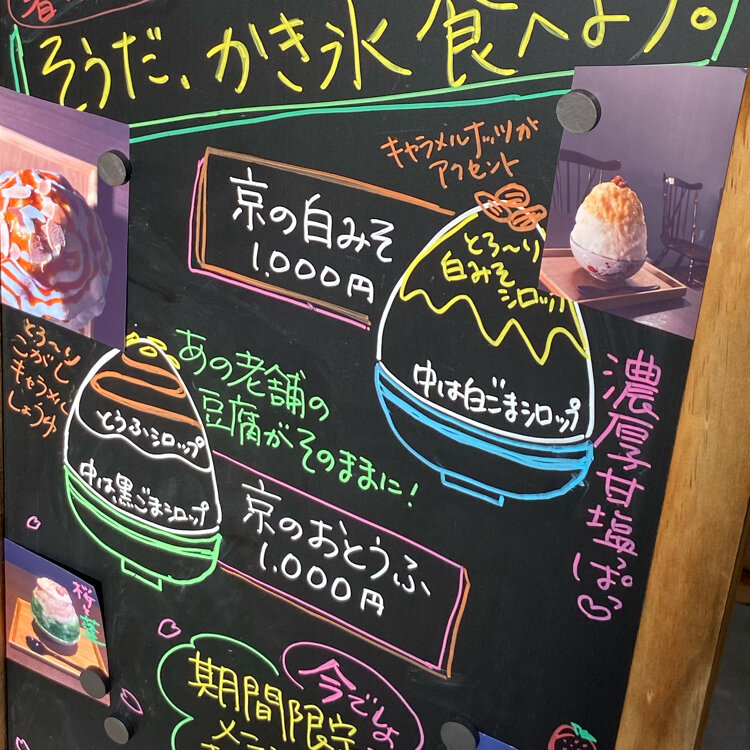 そうだ、かき氷食べよう。
キャラメルナッツが
アクセント
京の白みそ
1.000円
とろ〜り
白みそ
シロップ
中は白ごまシロップ
濃厚甘塩っぱ♡
とろ〜り
こがし
キャラメル
しょうゆ
あの老舗の
豆腐がそのままに!
とうふシロップ
中は黒ごまシロップ
京のおとうふ
1.000円
桜と
期間限定
今でしょ